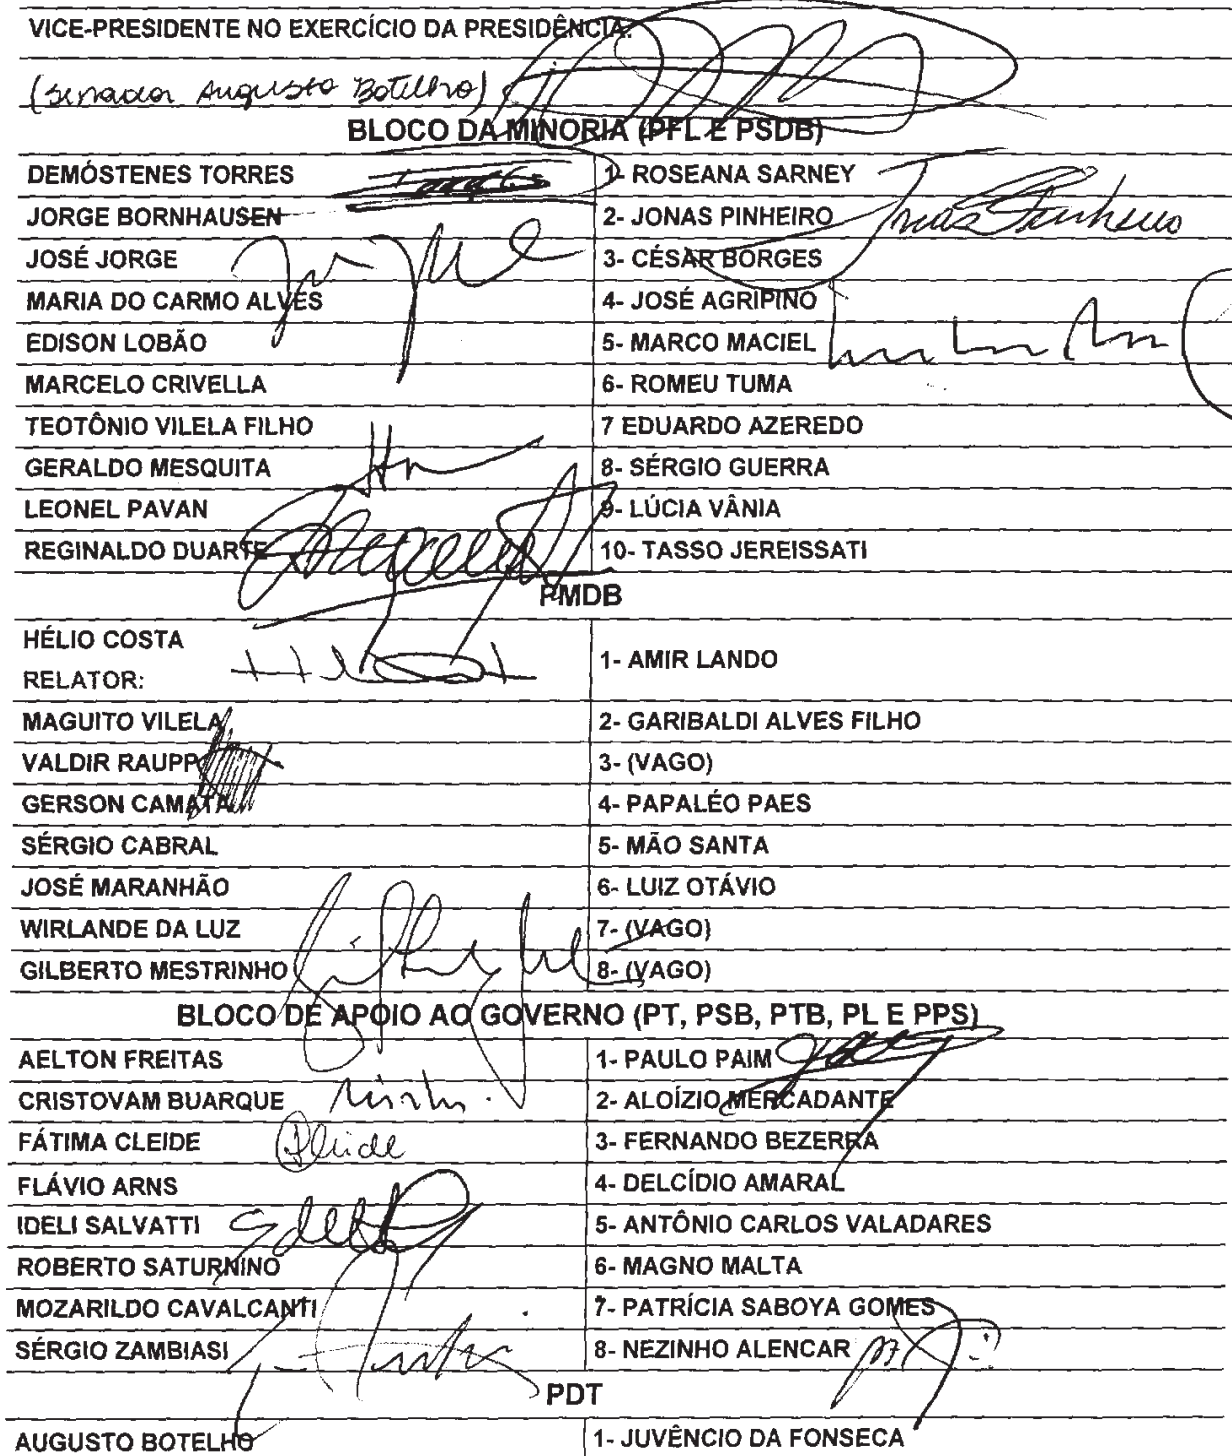 VICE-PRESIDENTE NO EXERCÍCIO DA PRESIDÊNCIA:
(senador Augusto Botelho)
BLOCO DA MINORIA (PFL E PSDB)
DEMÓSTENES TORRES 1- ROSEANA SARNEY
JORGE BORNHAUSEN 2- JONAS PINHEIRO Jonas Pinheiro
JOSÉ JORGE 3- CÉSAR BORGES
MARIA DO CARMO ALVES 4- JOSÉ AGRIPINO
EDISON LOBÃO 5- MARCO MACIEL
MARCELO CRIVELLA 6- ROMEU TUMA
TEOTÔNIO VILELA FILHO 7 EDUARDO AZEREDO
GERALDO MESQUITA 8- SÉRGIO GUERRA
LEONEL PAVAN 9- LÚCIA VÂNIA
REGINALDO DUARTE 10- TASSO JEREISSATI
PMDB
HÉLIO COSTA
RELATOR: 1- AMIR LANDO
MAGUITO VILELA 2- GARIBALDI ALVES FILHO
VALDIR RAUPP 3- (VAGO)
GERSON CAMATA 4- PAPALÉO PAES
SÉRGIO CABRAL 5- MÃO SANTA
JOSÉ MARANHÃO 6- LUIZ OTÁVIO
WIRLANDE DA LUZ 7- (VAGO)
GILBERTO MESTRINHO 8- (VAGO)
BLOCO DE APOIO AO GOVERNO (PT, PSB, PTB, PL E PPS)
AELTON FREITAS 1- PAULO PAIM
CRISTOVAM BUARQUE 2- ALOÍZIO MERCADANTE
FÁTIMA CLEIDE 3- FERNANDO BEZERRA
FLÁVIO ARNS 4- DELCÍDIO AMARAL
IDELI SALVATTI 5- ANTÔNIO CARLOS VALADARES
ROBERTO SATURNINO 6- MAGNO MALTA
MOZARILDO CAVALCANTI 7- PATRÍCIA SABOYA GOMES
SÉRGIO ZAMBIASI 8- NEZINHO ALENCAR
PDT
AUGUSTO BOTELHO 1- JUVÊNCIO DA FONSECA